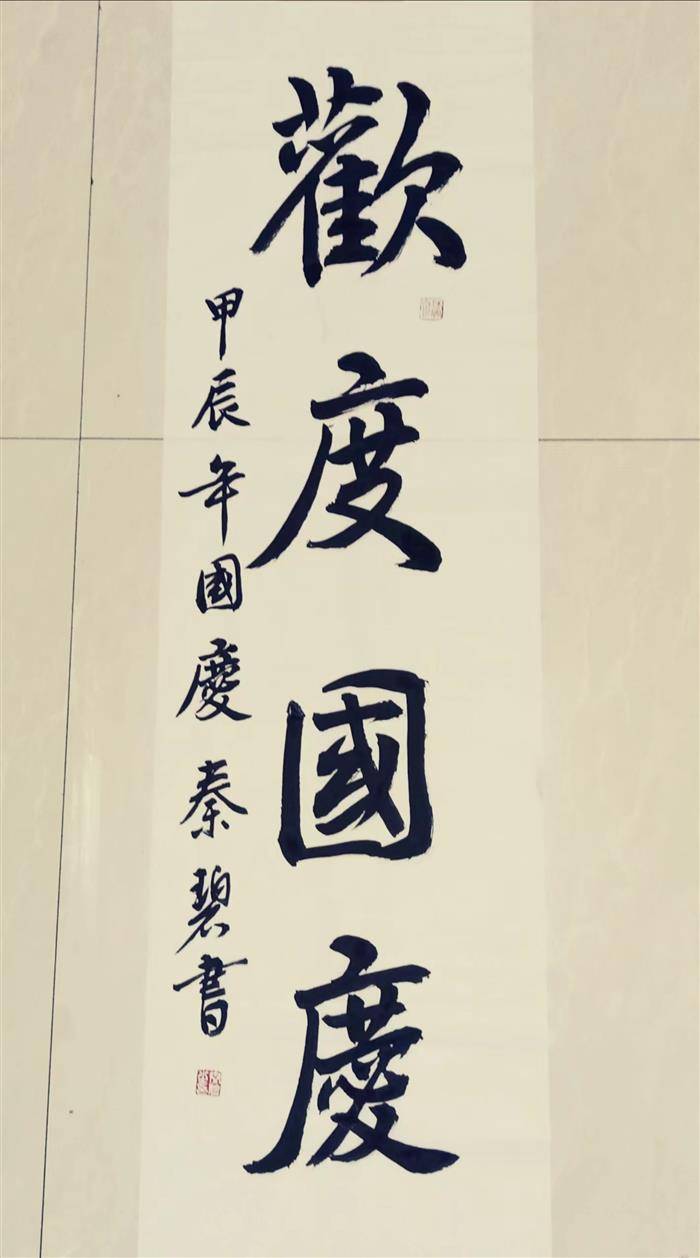 歡度國慶
甲辰年國慶秦碧書